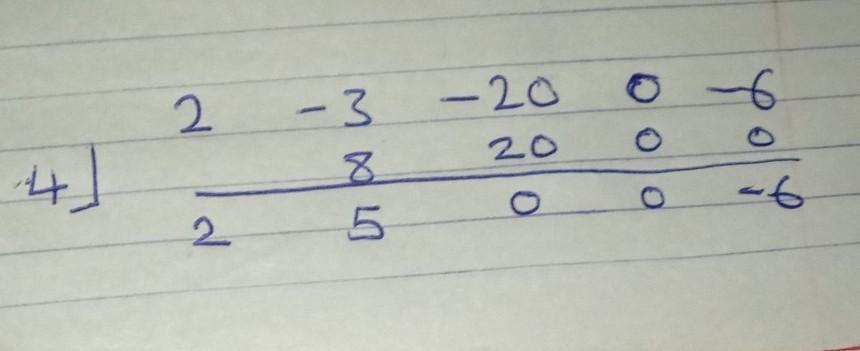 2 -3 -20 0 -6
4] 8 20 0 0
2 5 0 0 -6